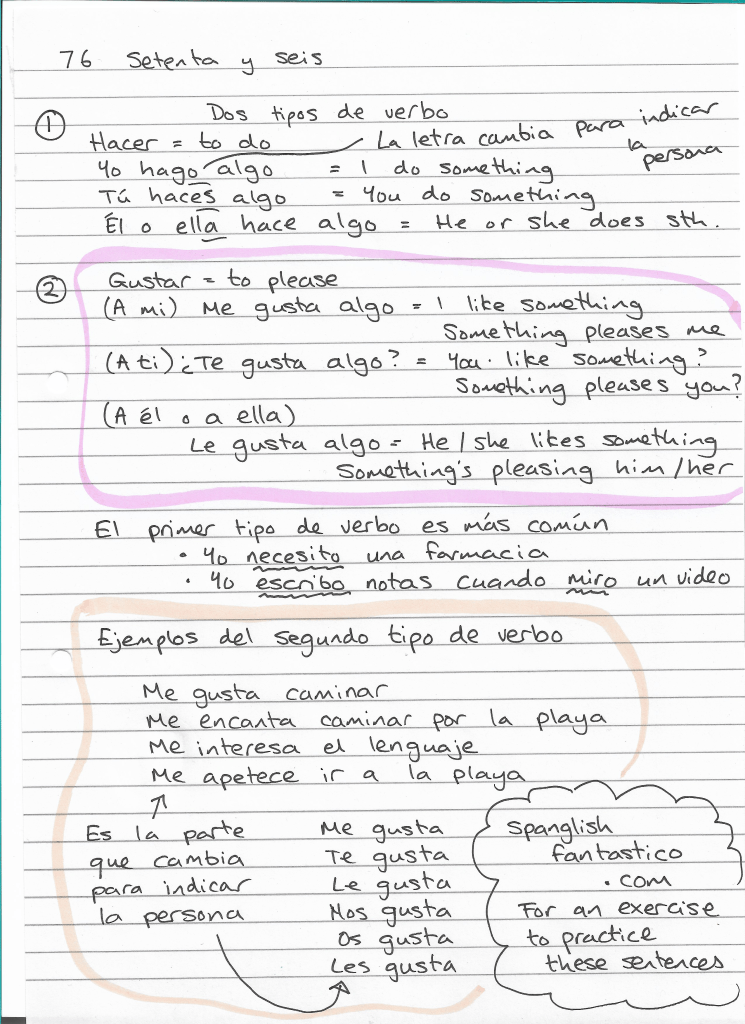 76 Setenta y seis
① Dos tipos de verbo
Hacer = to do
La letra cambia para indicar la persona
Yo hago algo = I do something
Tú haces algo = You do something
Él o ella hace algo = He or she does sth.
② Gustar = to please
(A mi) Me gusta algo = I like something
Something pleases me
(A ti) ¿Te gusta algo? = You like something?
Something pleases you?
(A él o a ella)
Le gusta algo = He / she likes something
Something's pleasing him / her
El primer tipo de verbo es más común
• Yo necesito una farmacia
• Yo escribo notas cuando miro un video
Ejemplos del segundo tipo de verbo
Me gusta caminar
Me encanta caminar por la playa
Me interesa el lenguaje
Me apetece ir a la playa
Es la parte
que cambia
para indicar
la persona
Me gusta
Te gusta
Le gusta
Nos gusta
Os gusta
Les gusta
Spanglish
fantastico
.com
For an exercise
to practice
these sentences